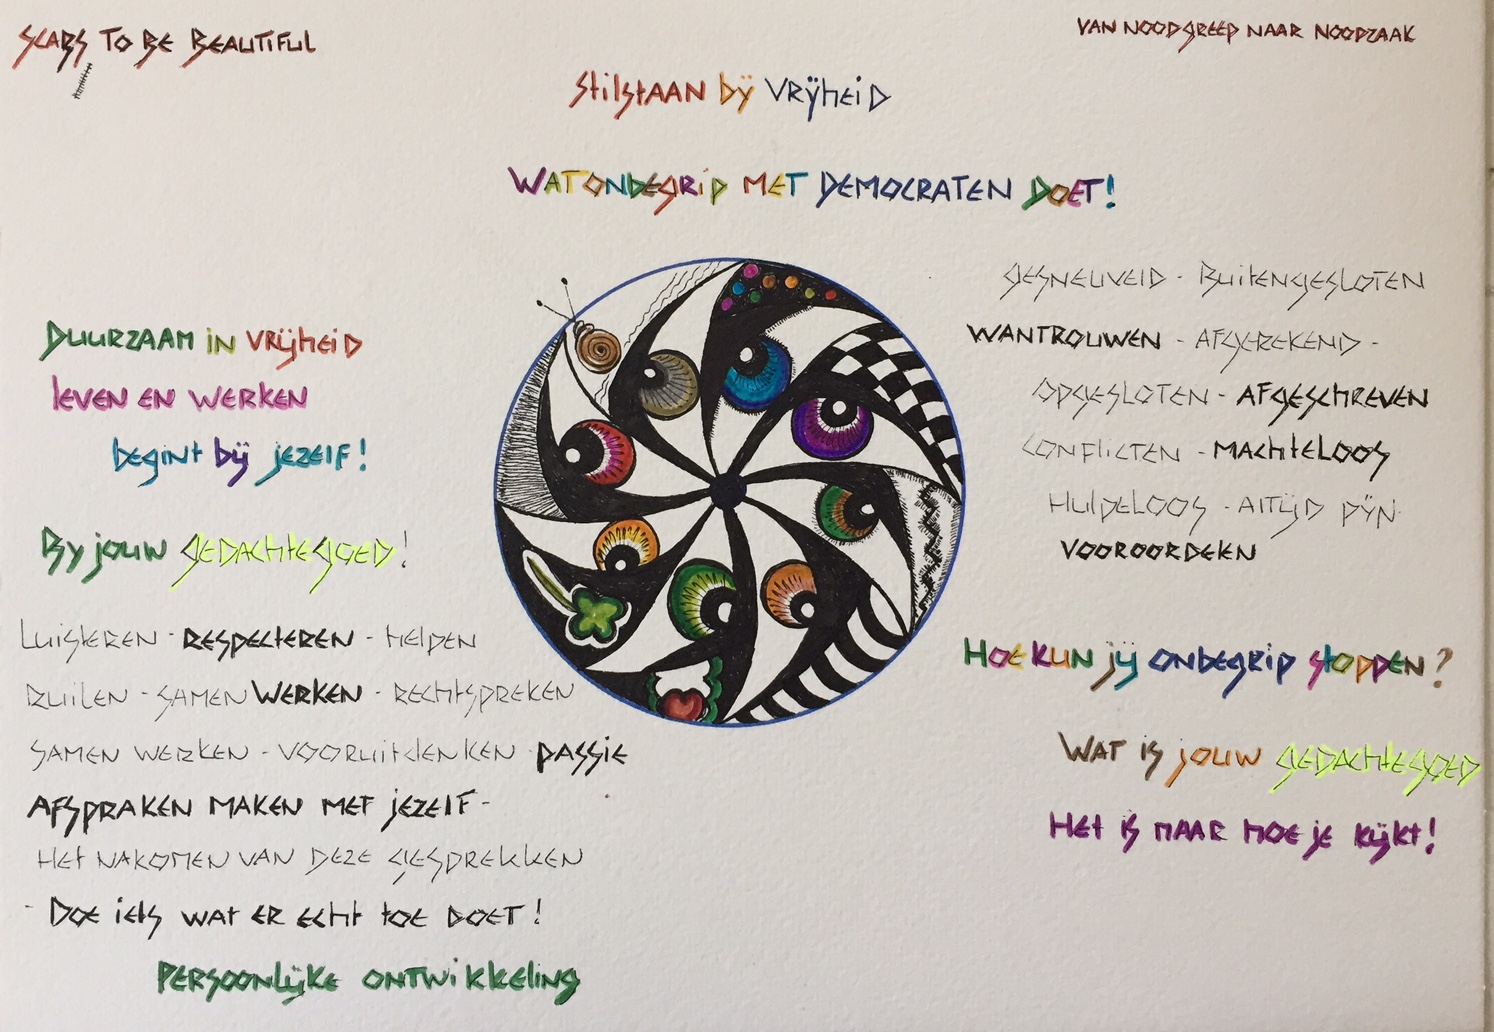 SCARS TO BE BEAUTIFUL
VAN NOODGREEP NAAR NOODZAAK
Stilstaan bij Vrijheid
WAT ONBEGRIP MET DEMOCRATEN DOET!
GESNEUVELD - BUITENGESLOTEN
WANTROUWEN - AFGEREKEND -
OPGESLOTEN - AFGESCHREVEN
CONFLICTEN - MACHTELOOS
HULPELOOS - ALTIJD PIJN
VOOROORDELEN
HOE KUN JIJ ONBEGRIP STOPPEN?
WAT IS JOUW GEDACHTEGOED
HET IS MAAR HOE JE KIJKT!
DUURZAAM IN VRIJHEID
LEVEN EN WERKEN
BEGINT BIJ JEZELF!
By JOUW GEDACHTEGOED!
LUISTEREN - RESPECTEREN - HELPEN
RUILEN - SAMENWERKEN - RECHTSPREKEN
SAMEN WERKEN - VOORUITDENKEN PASSIE
AFSPRAKEN MAKEN MET JEZELF -
HET NAKOMEN VAN DEZE GESPREKKEN
- DOE IETS WAT ER ECHT TOE DOET!
PERSOONLIJKE ONTWIKKELING